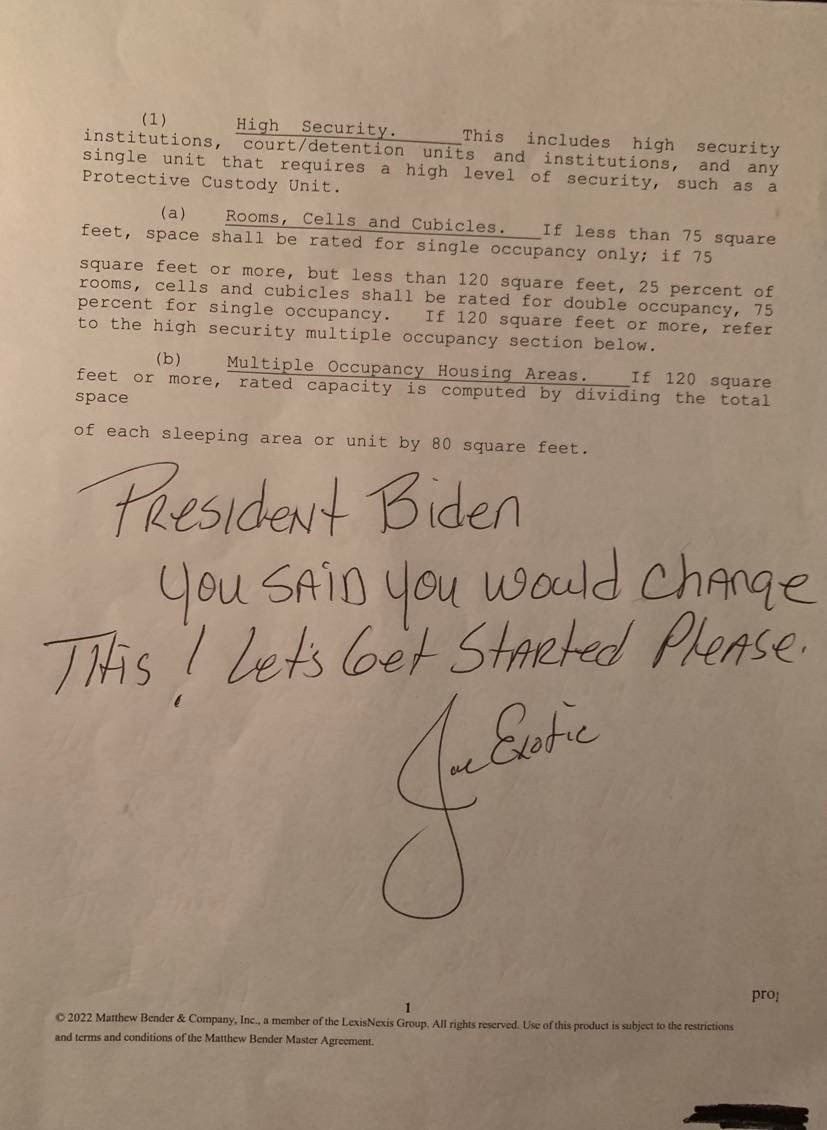 (1) High Security. This includes high security
institutions, court/detention units and institutions, and any
single unit that requires a high level of security, such as a
Protective Custody Unit.
(a) Rooms, Cells and Cubicles. If less than 75 square
feet, space shall be rated for single occupancy only; if 75
square feet or more, but less than 120 square feet, 25 percent of
rooms, cells and cubicles shall be rated for double occupancy, 75
percent for single occupancy. If 120 square feet or more, refer
to the high security multiple occupancy section below.
(b) Multiple Occupancy Housing Areas. If 120 square
feet or more, rated capacity is computed by dividing the total
space
of each sleeping area or unit by 80 square feet.
President Biden
You SAID you would Change
This! Let's Get Started Please.
Joe Exotic
1
© 2022 Matthew Bender & Company, Inc., a member of the LexisNexis Group. All rights reserved. Use of this product is subject to the restrictions
and terms and conditions of the Matthew Bender Master Agreement.